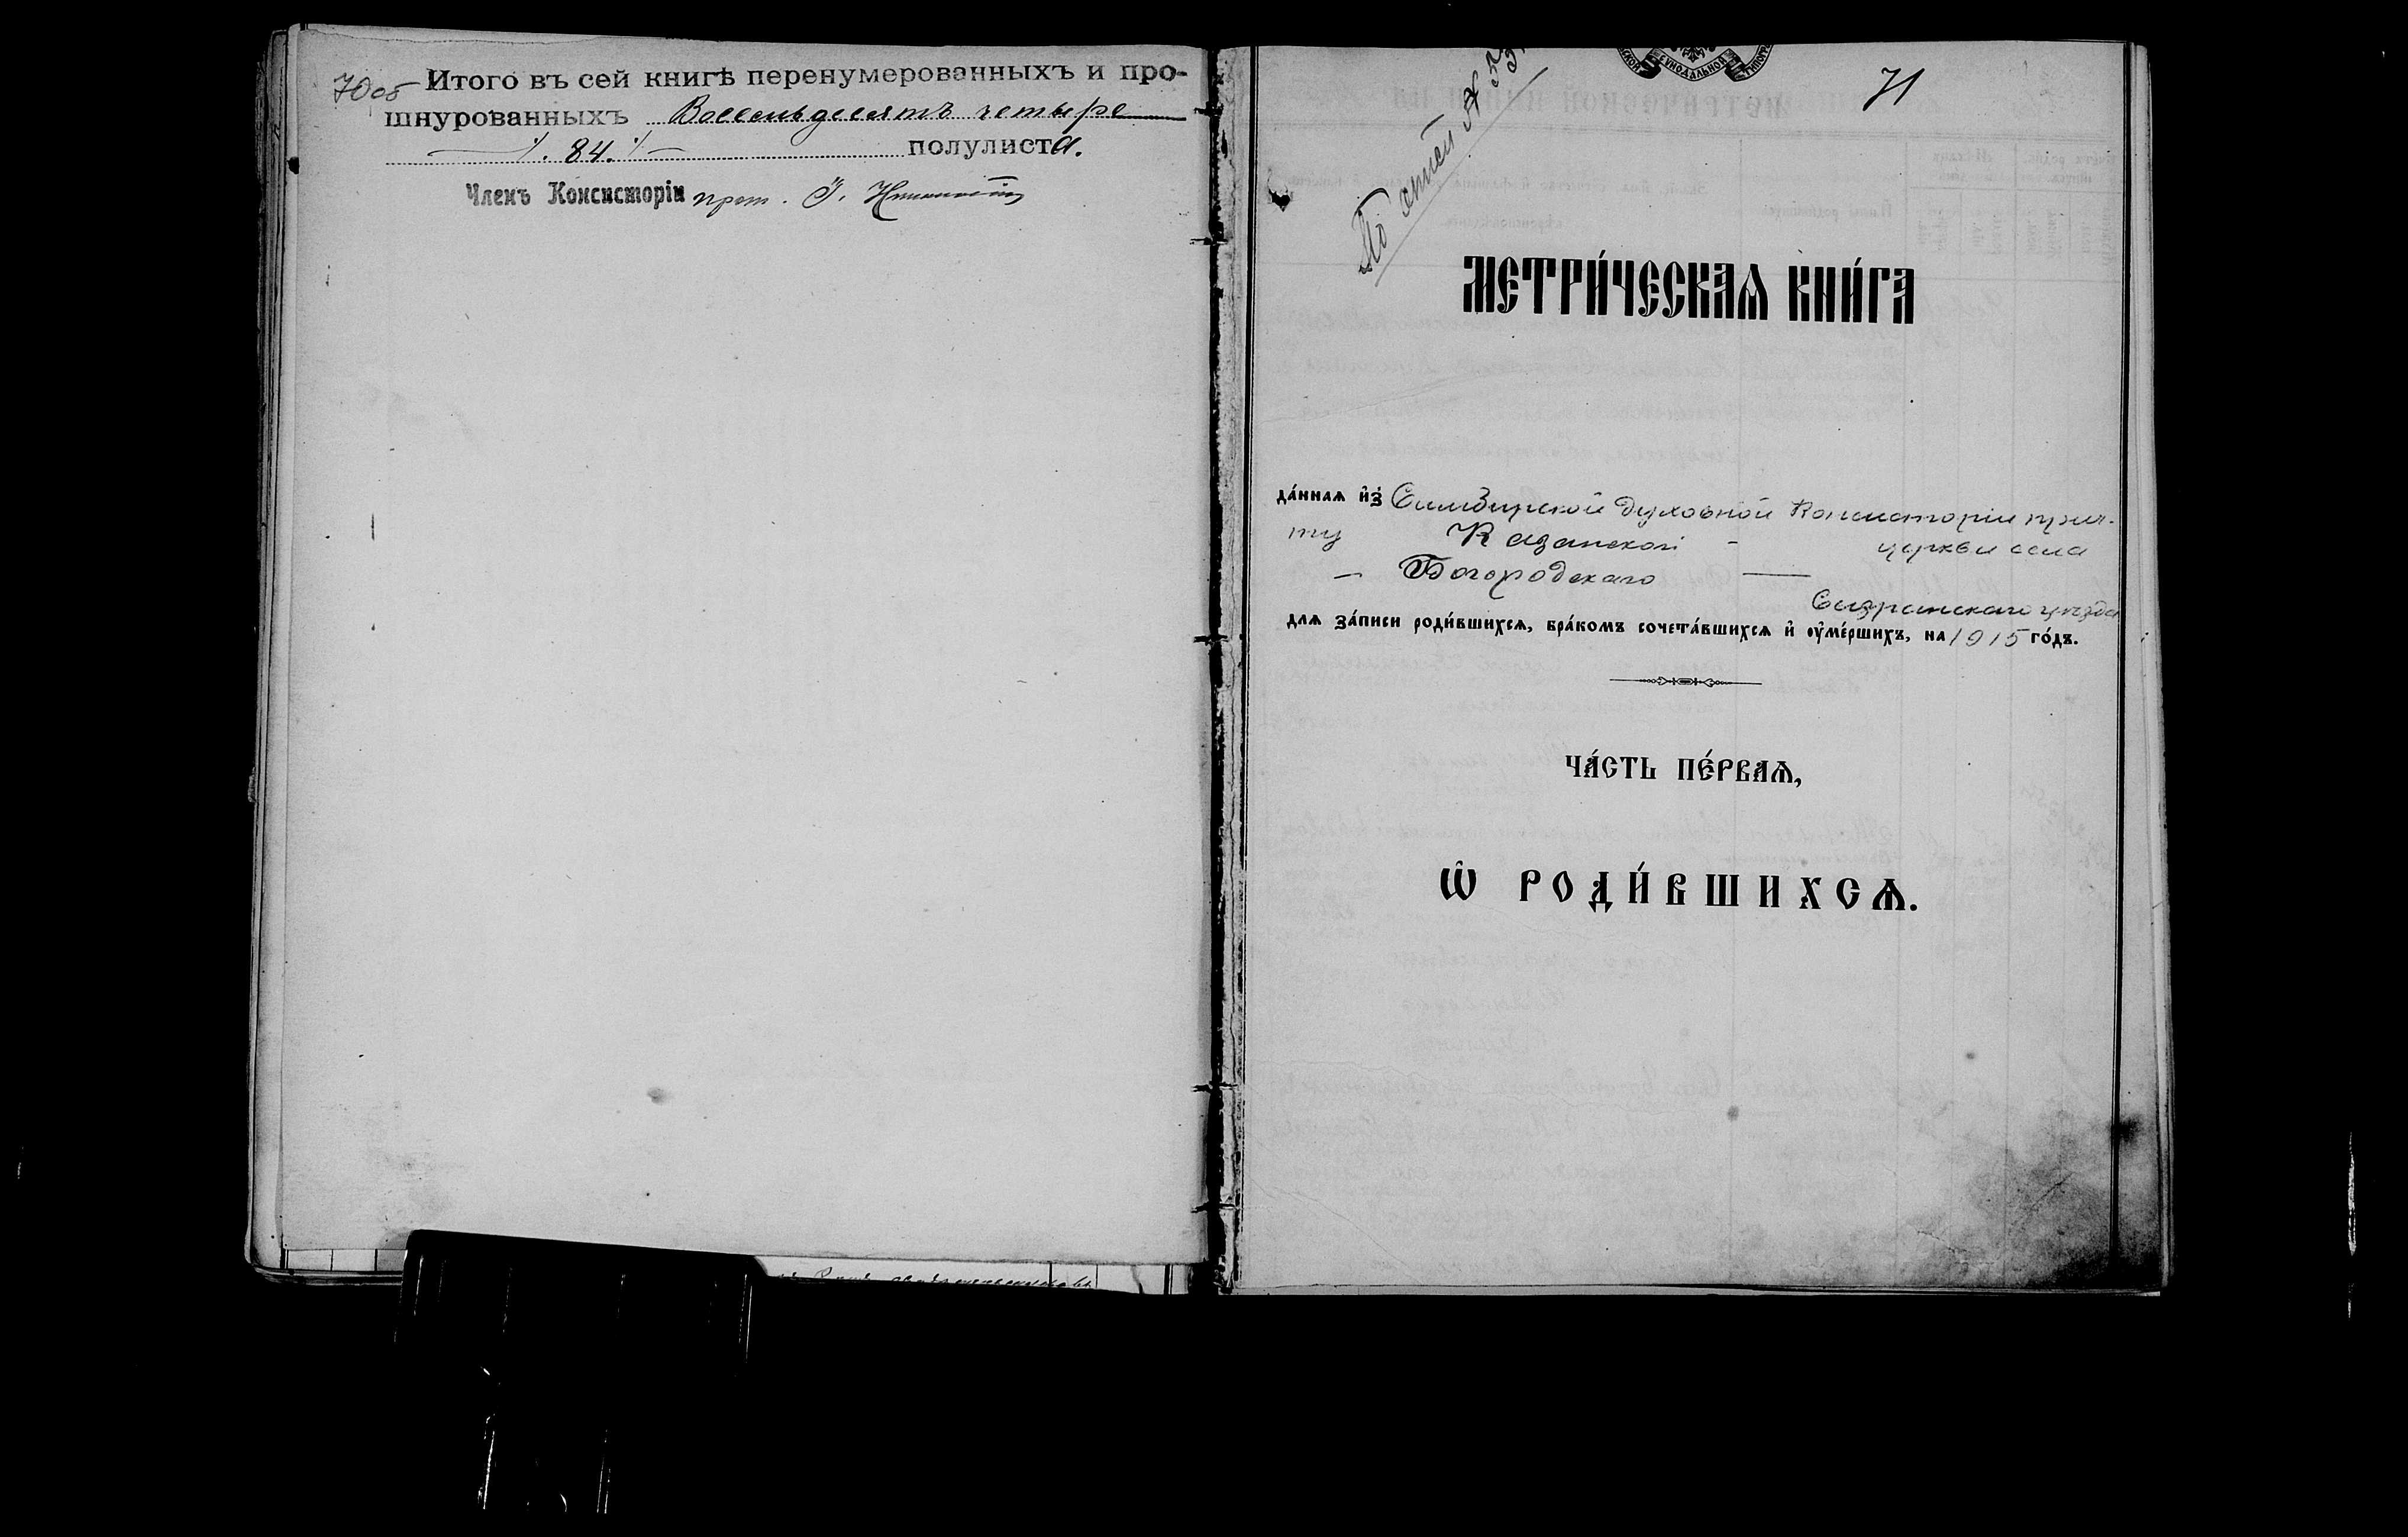 70об
Итого въ сей книгѣ перенумерованныхъ и про-
шнурованныхъ Восемьдесятъ четыре
84. полулиста.
Членъ Консисторіи прот. І.
71
По описи №
СѴНОДАЛЬНОЙ
МЕТРИ́ЧЕСКАѦ КНИ́ГА
да́ннаѧ и҆з̾ Симбирской Духовной Консисторіи прич-
ту Казанской - церкви села
— Богородскаго —
Сызранскаго уѣзда
длѧ за́писи роди́вшихсѧ, бра́комъ сочета́вшихсѧ и҆ ѹ҆ме́ршихъ, на 1915 го́дъ.
ЧА́СТЬ ПЕ́РВАѦ,
Ѽ РОДИ́ВШИХСѦ.